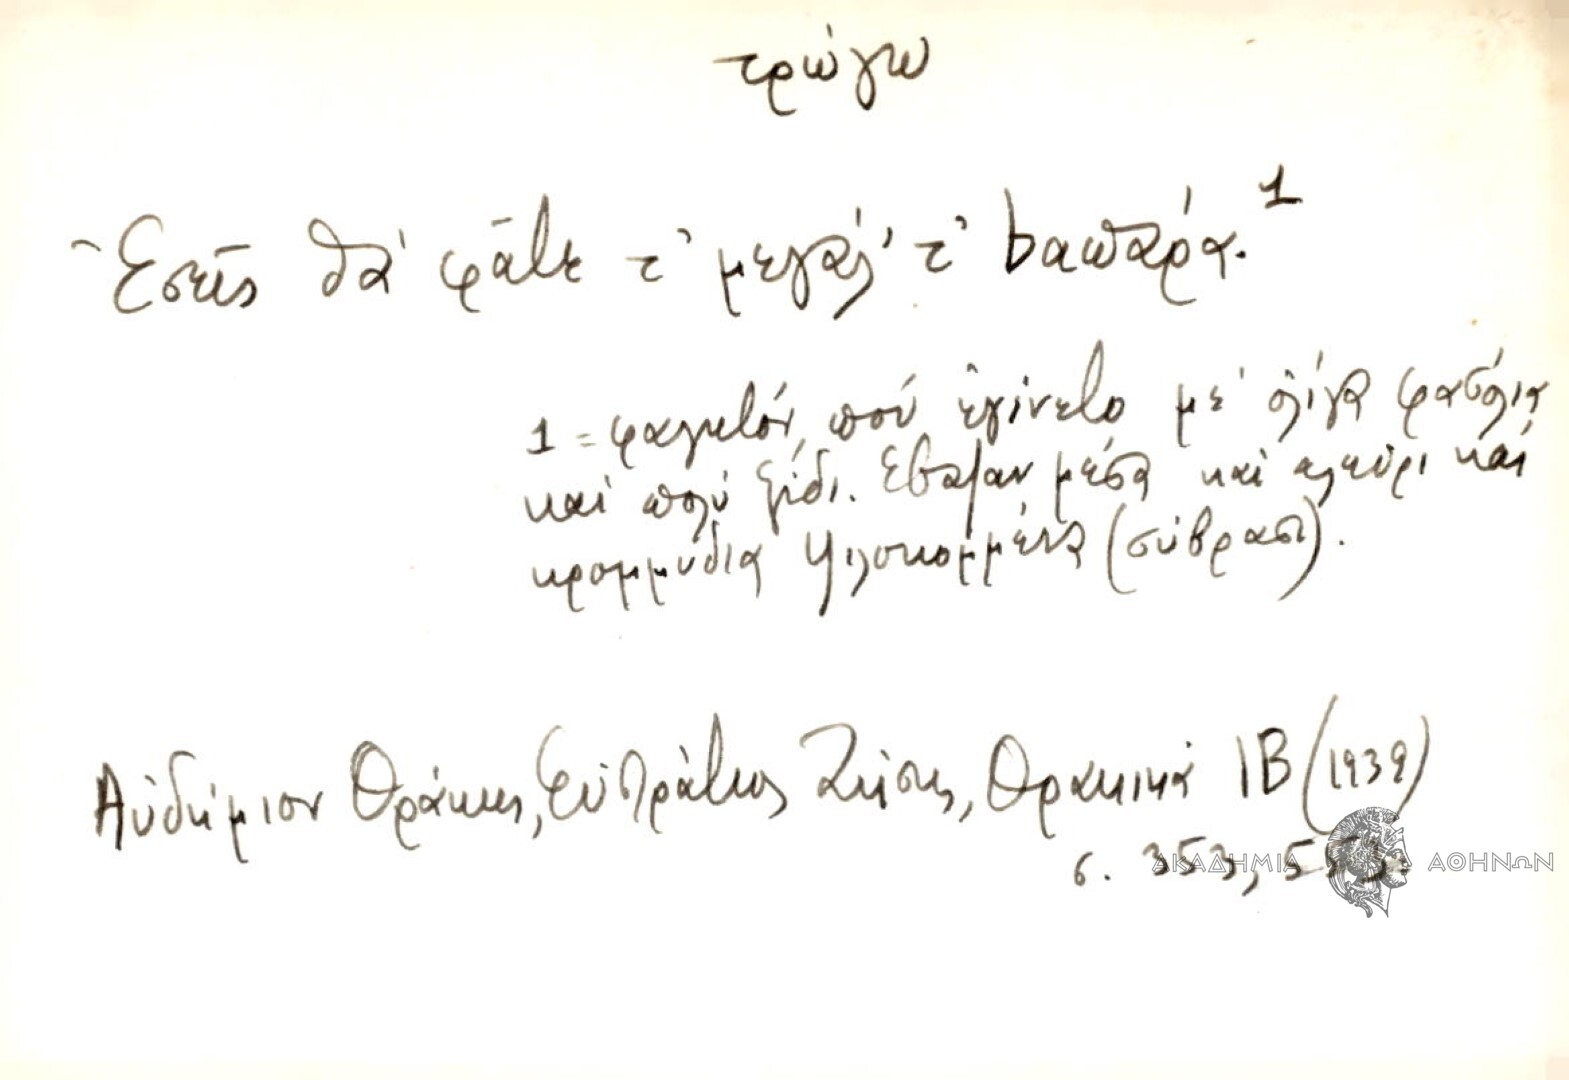 τρώγω
Ἐσεῖς θὰ φᾶτε τ' μεγάλ' τ' bαπάρα.¹
1 = φαγητόν, πού ἐγίνετο μὲ ὀλίγα φασόλια
καὶ πολύ ξίδι. Ἔβαζαν μέσα καὶ ἀλεύρι καὶ
κρομμύδια ψιλοκομμένα (σύβραση).
Αὐδήμιον Θράκης, Εὐστράτιος Ζήσης, Θρακικά ΙΒ (1939)
σ. 353,
ΑΚΑΔΗΜΙΑ ΑΘΗΝΩΝ